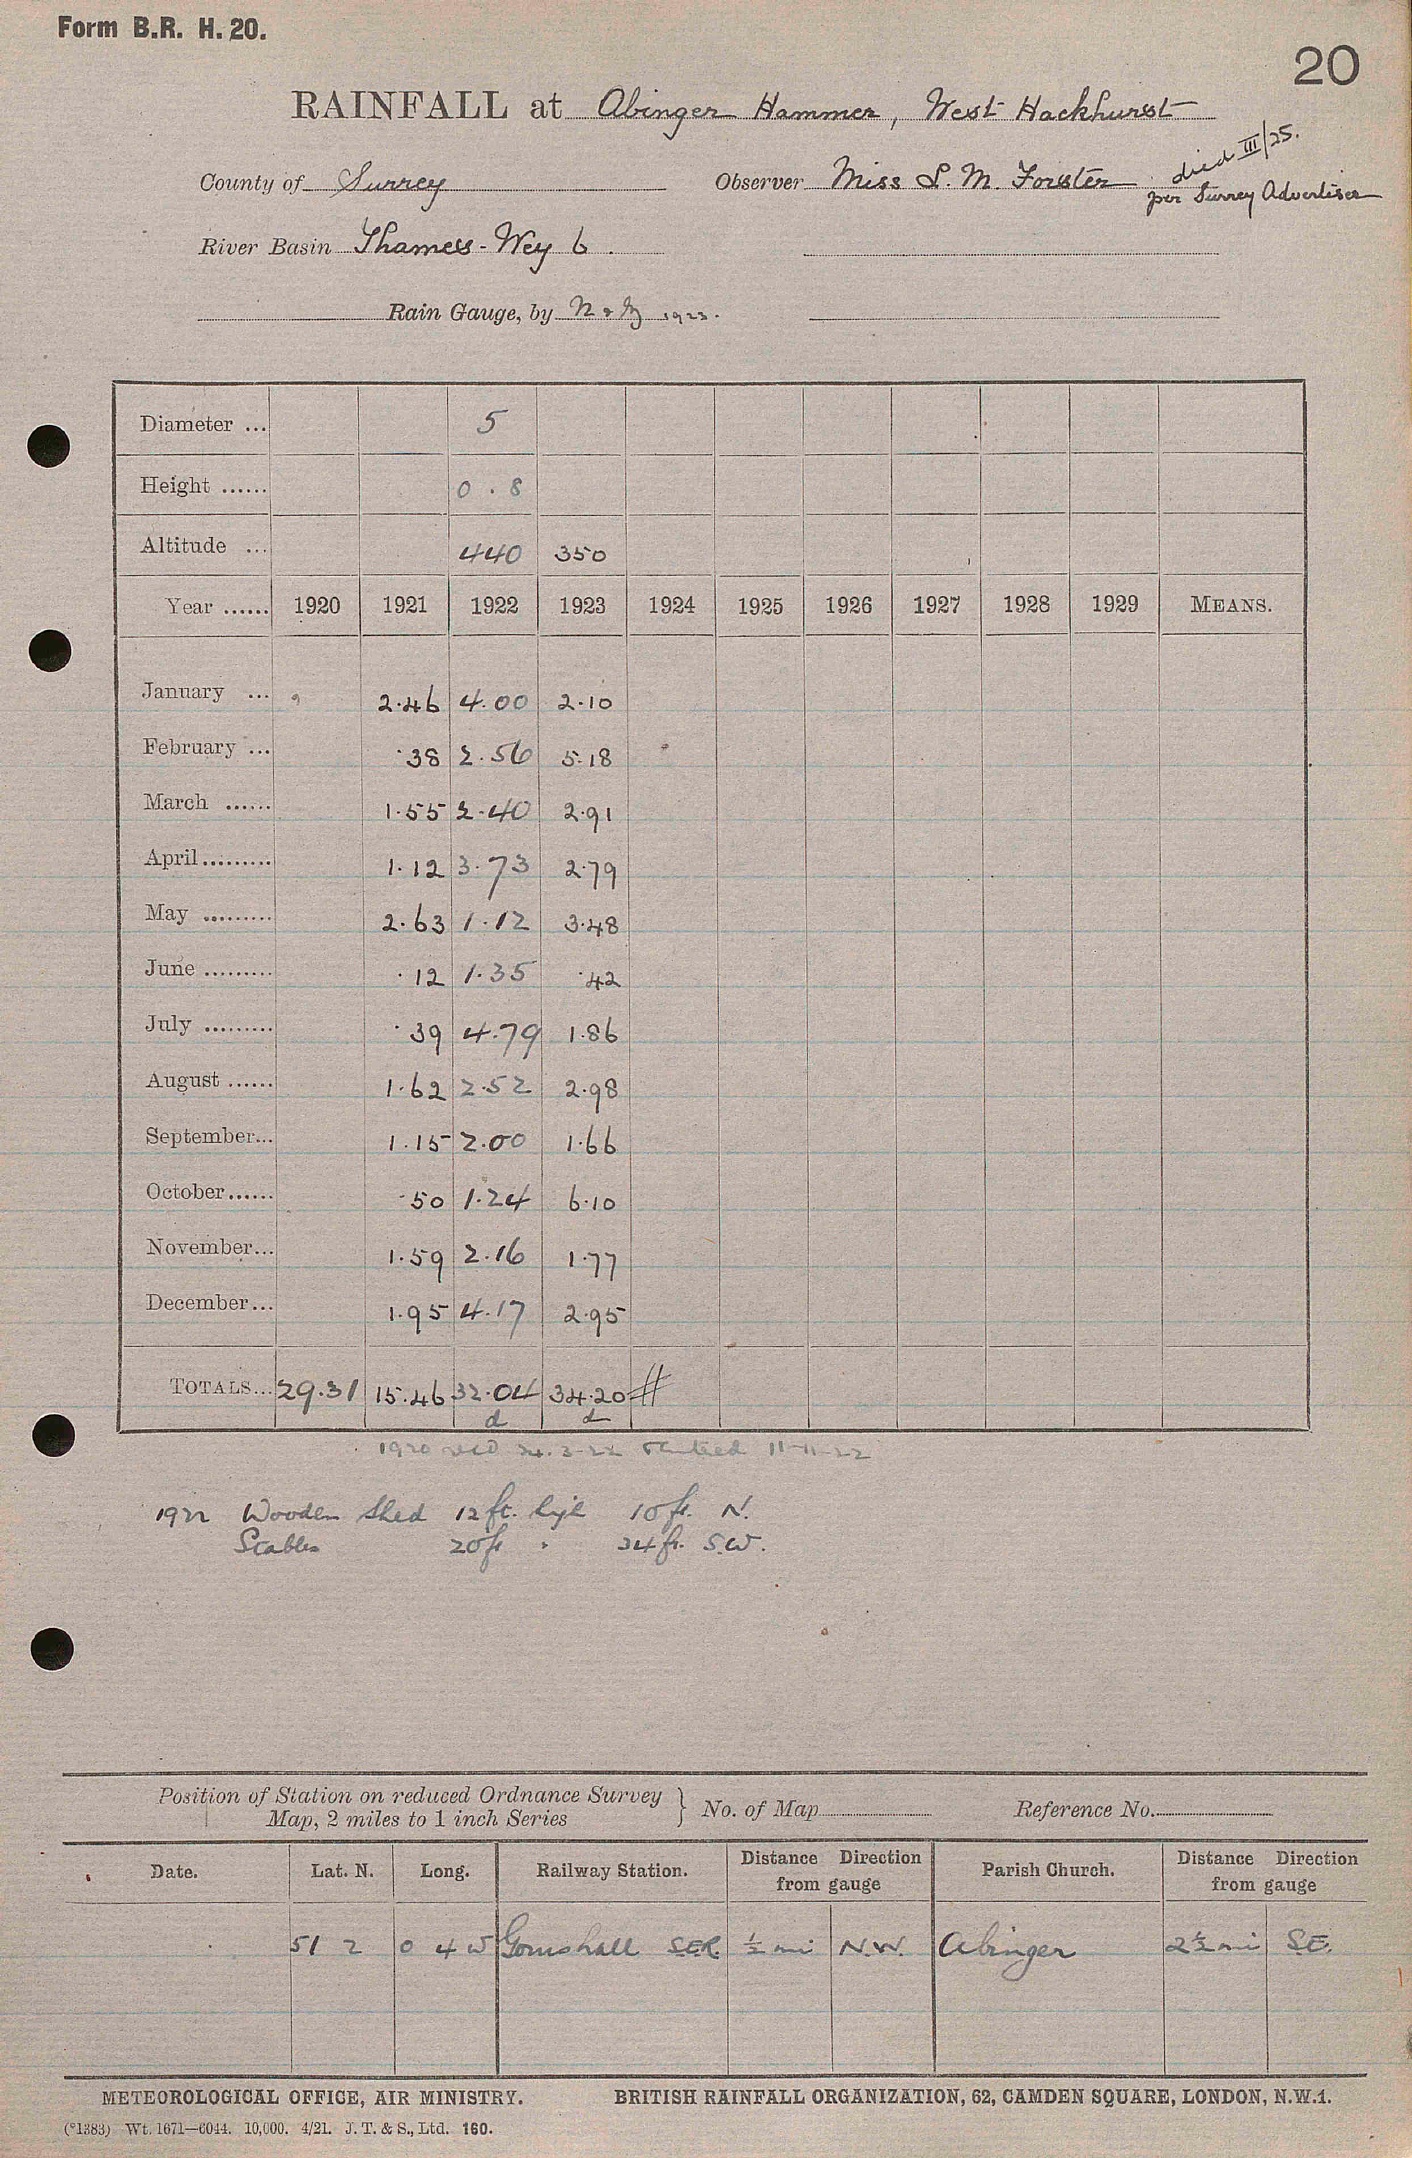 Form B.R. H. 20.
20
RAINFALL at Abinger Hammer, West Hackhurst
died III/25.
County of Surrey Observer Miss L. M. Forster per Surrey Advertiser
River Basin Thames - Wey b.
Rain Gauge, by N & Z 1923.
Diameter ... 5
Height ...... 0.8
Altitude ... 440 350
Year ...... 1920 1921 1922 1923 1924 1925 1926 1927 1928 1929 MEANS.
January ... 2.46 4.00 2.10
February ... .38 2.56 5.18
March ...... 1.55 2.40 2.91
April ......... 1.12 3.73 2.79
May ......... 2.63 1.12 3.48
June ......... .12 1.35 .42
July ......... .39 4.79 1.86
August ...... 1.62 2.52 2.98
September... 1.15 2.00 1.66
October...... .50 1.24 6.10
November... 1.59 2.16 1.77
December... 1.95 4.17 2.95
TOTALS... 29.31 15.46 32.04 34.20 #
d d
1920 recd 24.3.22 11-11-22
1922 Wooden Shed 12 ft. high 10 ft. N.
Stables 20 ft " 34 ft. S.W.
Position of Station on reduced Ordnance Survey
Map, 2 miles to 1 inch Series } No. of Map Reference No.
Date. Lat. N. Long. Railway Station. Distance Direction from gauge Parish Church. Distance Direction from gauge
51 2 0 4 W Gomshall S.E.R. ½ mi N.W. Abinger 2½ mi S.E.
METEOROLOGICAL OFFICE, AIR MINISTRY. BRITISH RAINFALL ORGANIZATION, 62, CAMDEN SQUARE, LONDON, N.W.1.
(*1383) Wt. 1671—6044. 10,000. 4/21. J. T. & S., Ltd. 160.